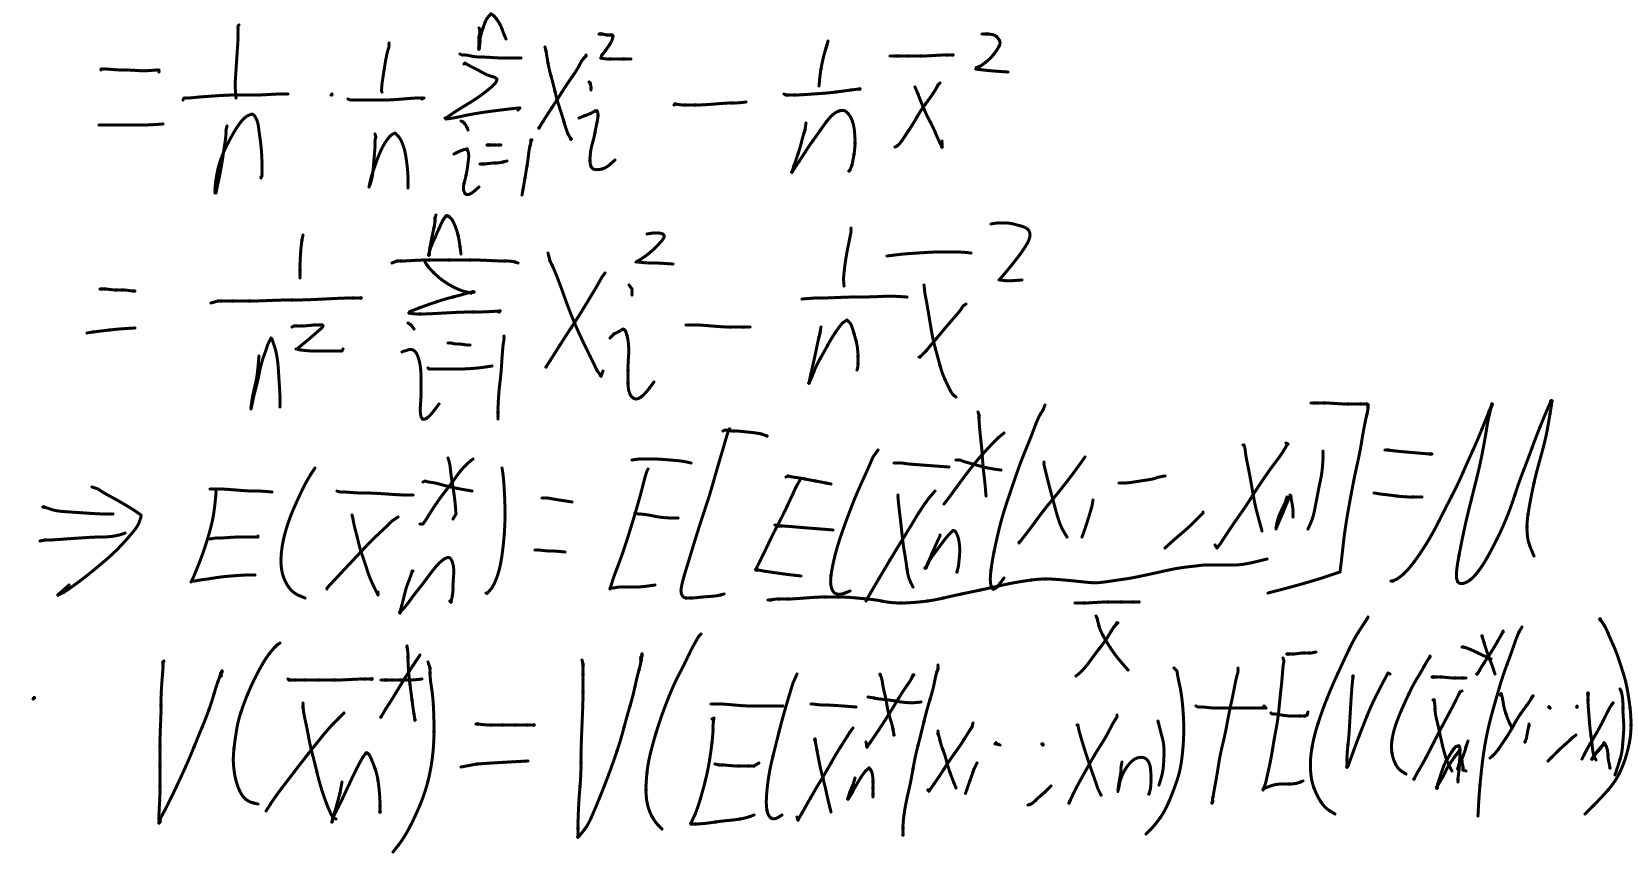 = 1/n · 1/n ∑_{i=1}^{n} X_i^2 − 1/n X̄^2
= 1/n^2 ∑_{i=1}^{n} X_i^2 − 1/n X̄^2
⇒ E(X̄_n^*) = E[E(X̄_n^* | X_1 −, X_n)] = μ
X̄
V(X̄_n^*) = V(E(X̄_n^* | X_1 ·; X_n)) + E(V(X̄_n^* | X_1 ·; X_n)